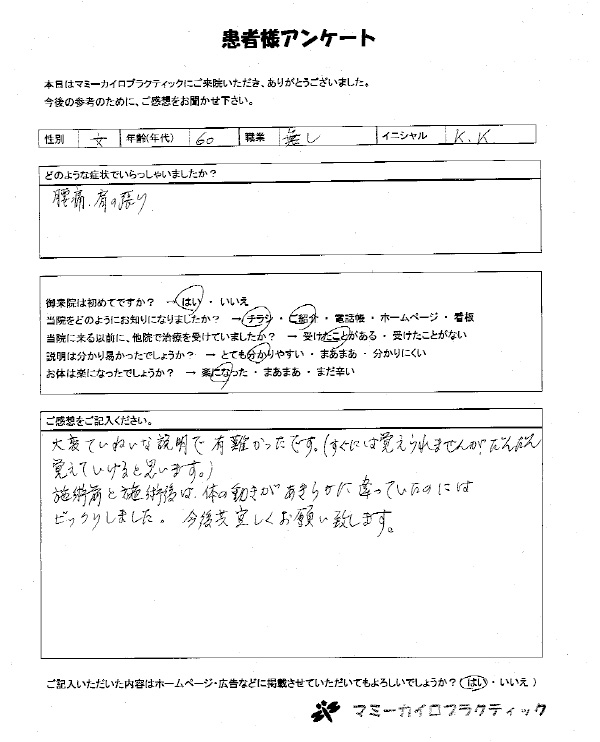 患者様アンケート
本日はマミーカイロプラクティックにご来院いただき、ありがとうございました。
今後の参考のために、ご感想をお聞かせ下さい。
性別 女 年齢(年代) 60 職業 無し イニシャル K.K
どのような症状でいらっしゃいましたか？
腰痛、肩の張り
御来院は初めてですか？ → はい ・ いいえ
当院をどのようにお知りになりましたか？ → チラシ ・ ご紹介 ・ 電話帳 ・ ホームページ ・ 看板
当院に来る以前に、他院で治療を受けていましたか？ → 受けたことがある ・ 受けたことがない
説明は分かり易かったでしょうか？ → とても分かりやすい ・ まあまあ ・ 分かりにくい
お体は楽になったでしょうか？ → 楽になった ・ まあまあ ・ まだ辛い
ご感想をご記入ください。
大変ていねいな説明で有難かったです。(すぐには覚えられませんがだんだん
覚えていけると思います。)
施術前と施術後は、体の動きがあきらかに違っていたのには
ビックリしました。今後共宜しくお願い致します。
ご記入いただいた内容はホームページ・広告などに掲載させていただいてもよろしいでしょうか？(はい ・ いいえ )
マミーカイロプラクティック